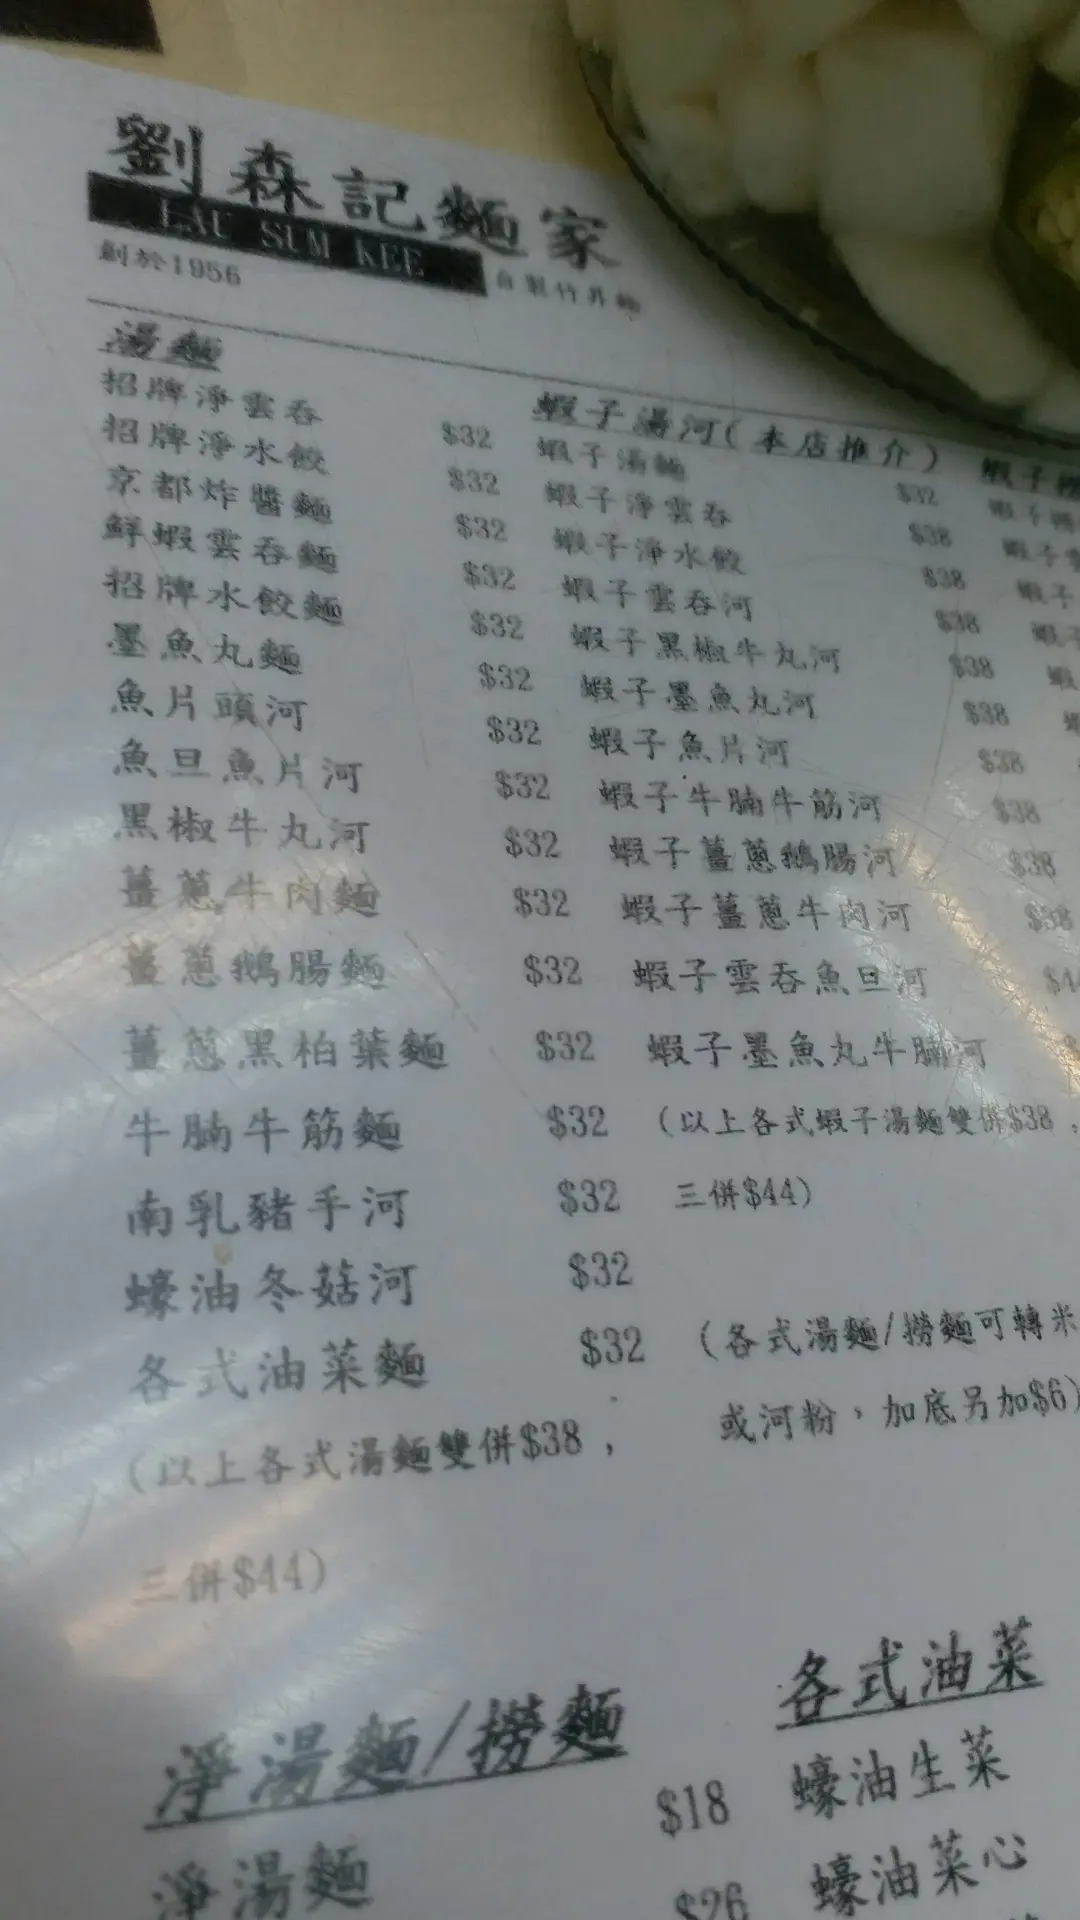 劉森記麵家
LAU SUM KEE
創於1956 自製竹昇麵
湯麵
招牌淨雲吞 $32
招牌淨水餃 $32
京都炸醬麵 $32
鮮蝦雲吞麵 $32
招牌水餃麵 $32
墨魚丸麵 $32
魚片頭河 $32
魚旦魚片河 $32
黑椒牛丸河 $32
薑蔥牛肉麵 $32
薑蔥鵝腸麵 $32
薑蔥黑柏葉麵 $32
牛腩牛筋麵 $32
南乳豬手河 $32
蠔油冬菇河 $32
各式油菜麵 $32
(以上各式湯麵雙併$38,
三併$44)
蝦子湯河(本店推介)
蝦子湯麵 $32
蝦子淨雲吞 $38
蝦子淨水餃 $38
蝦子雲吞河 $38
蝦子黑椒牛丸河 $38
蝦子墨魚丸河 $38
蝦子魚片河 $38
蝦子牛腩牛筋河 $38
蝦子薑蔥鵝腸河 $38
蝦子薑蔥牛肉河 $38
蝦子雲吞魚旦河
蝦子墨魚丸牛腩河
(以上各式蝦子湯麵雙併$38,
三併$44)
(各式湯麵/撈麵可轉米
或河粉,加底另加$6)
蝦子
淨湯麵/撈麵
淨湯麵 $18
$26
各式油菜
蠔油生菜
蠔油菜心